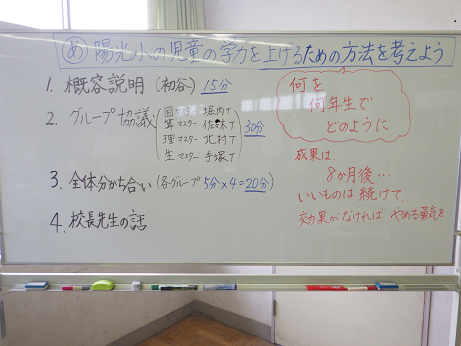 め 陽光小の児童の学力を上げるための方法を考えよう
1. 概容説明 (初谷) 15分
2. グループ協議
国マスター 堀内T
算マスター 佐林T
理マスター 北村T
生マスター 手塚T
30分
3. 全体分かち合い (各グループ 5分×4=20分)
4. 校長先生の話
何を
何年生で
どのように
成果は
8か月後…
いいものは続けて
効果がなければ やめる勇気を